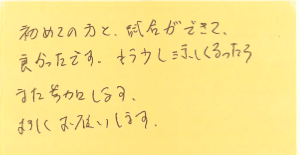 初めての方と、試合ができて、
良かったです。もう少し涼しくなったら
また参加します。
よろしくお願いします。